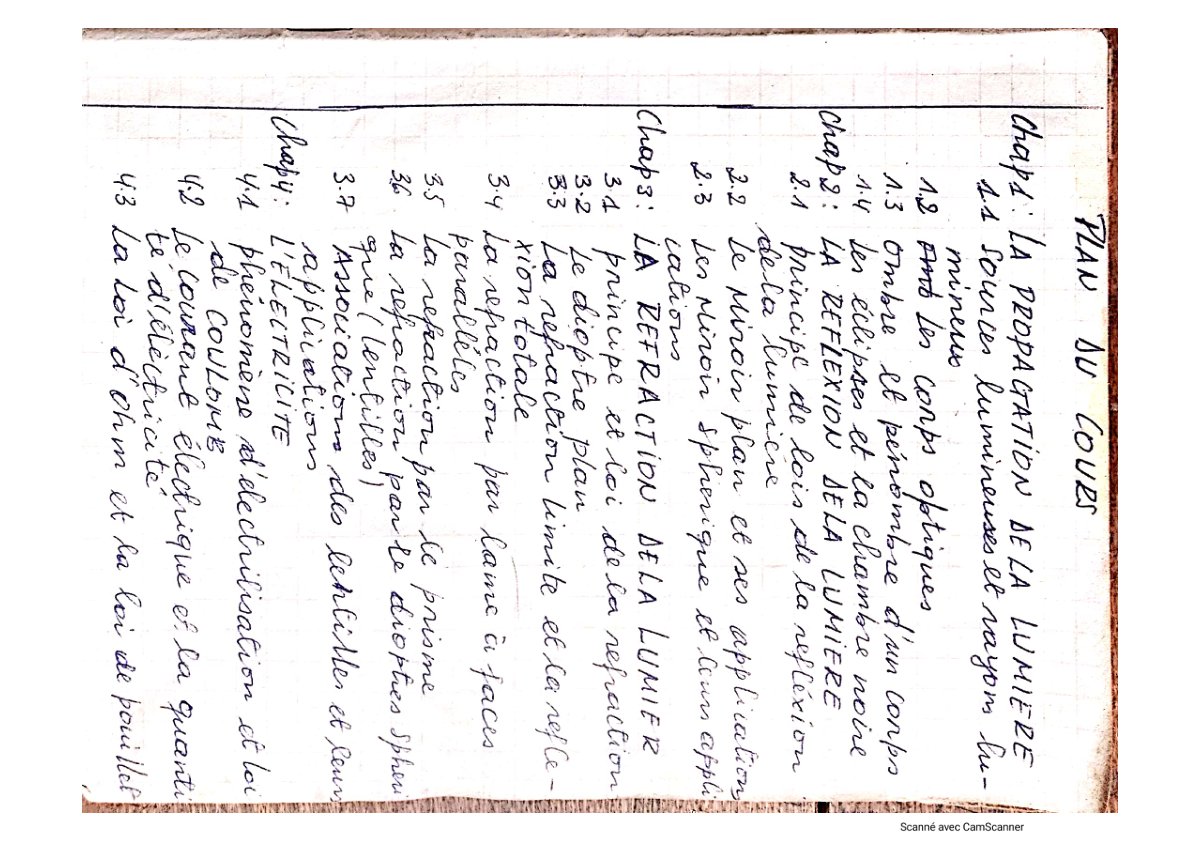 PLAN DU COURS
Chap1: LA PROPAGATION DE LA LUMIERE
1.1 Sources lumineuses et rayons lu-
mineux
1.2 Les corps optiques
1.3 Ombre et pénombre d'un corps
1.4 Les éclipses et la chambre noire
Chap2: LA REFLEXION DE LA LUMIERE
2.1 principe de lois de la refléxion
de la lumière
2.2 Le Miroir plan et ses applications
2.3 Les Miroir spherique et leurs appli
cations
Chap3: LA REFRACTION DE LA LUMIER
3.1 principe et loi de la refraction
3.2 Le dioptre plan
3.3 La refraction limite et la refle-
xion totale
3.4 La refraction par lame à faces
parallèles
3.5 La refraction par le prisme
3.6 La refraction par le dioptres spheri
que (lentilles)
3.7 Associations des lentilles et leurs
applications
Chap4: L'ÉLECTRICITE
4.1 phénomène d'électrilisation et loi
de COULOMB
4.2 Le courant électrique et la quanti
té d'électricité
4.3 La Loi d'ohm et la loi de pouillet
Scanné avec CamScanner